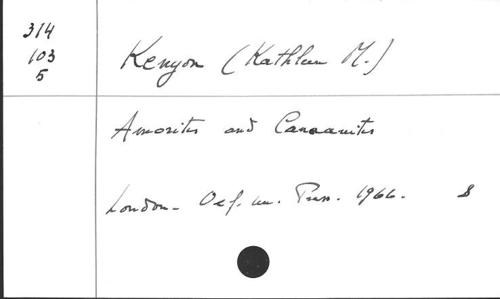 314
103
5
Kenyon (Kathleen M.)
Amorites and Canaanites
London - Oxf. un. Press. 1966. 8